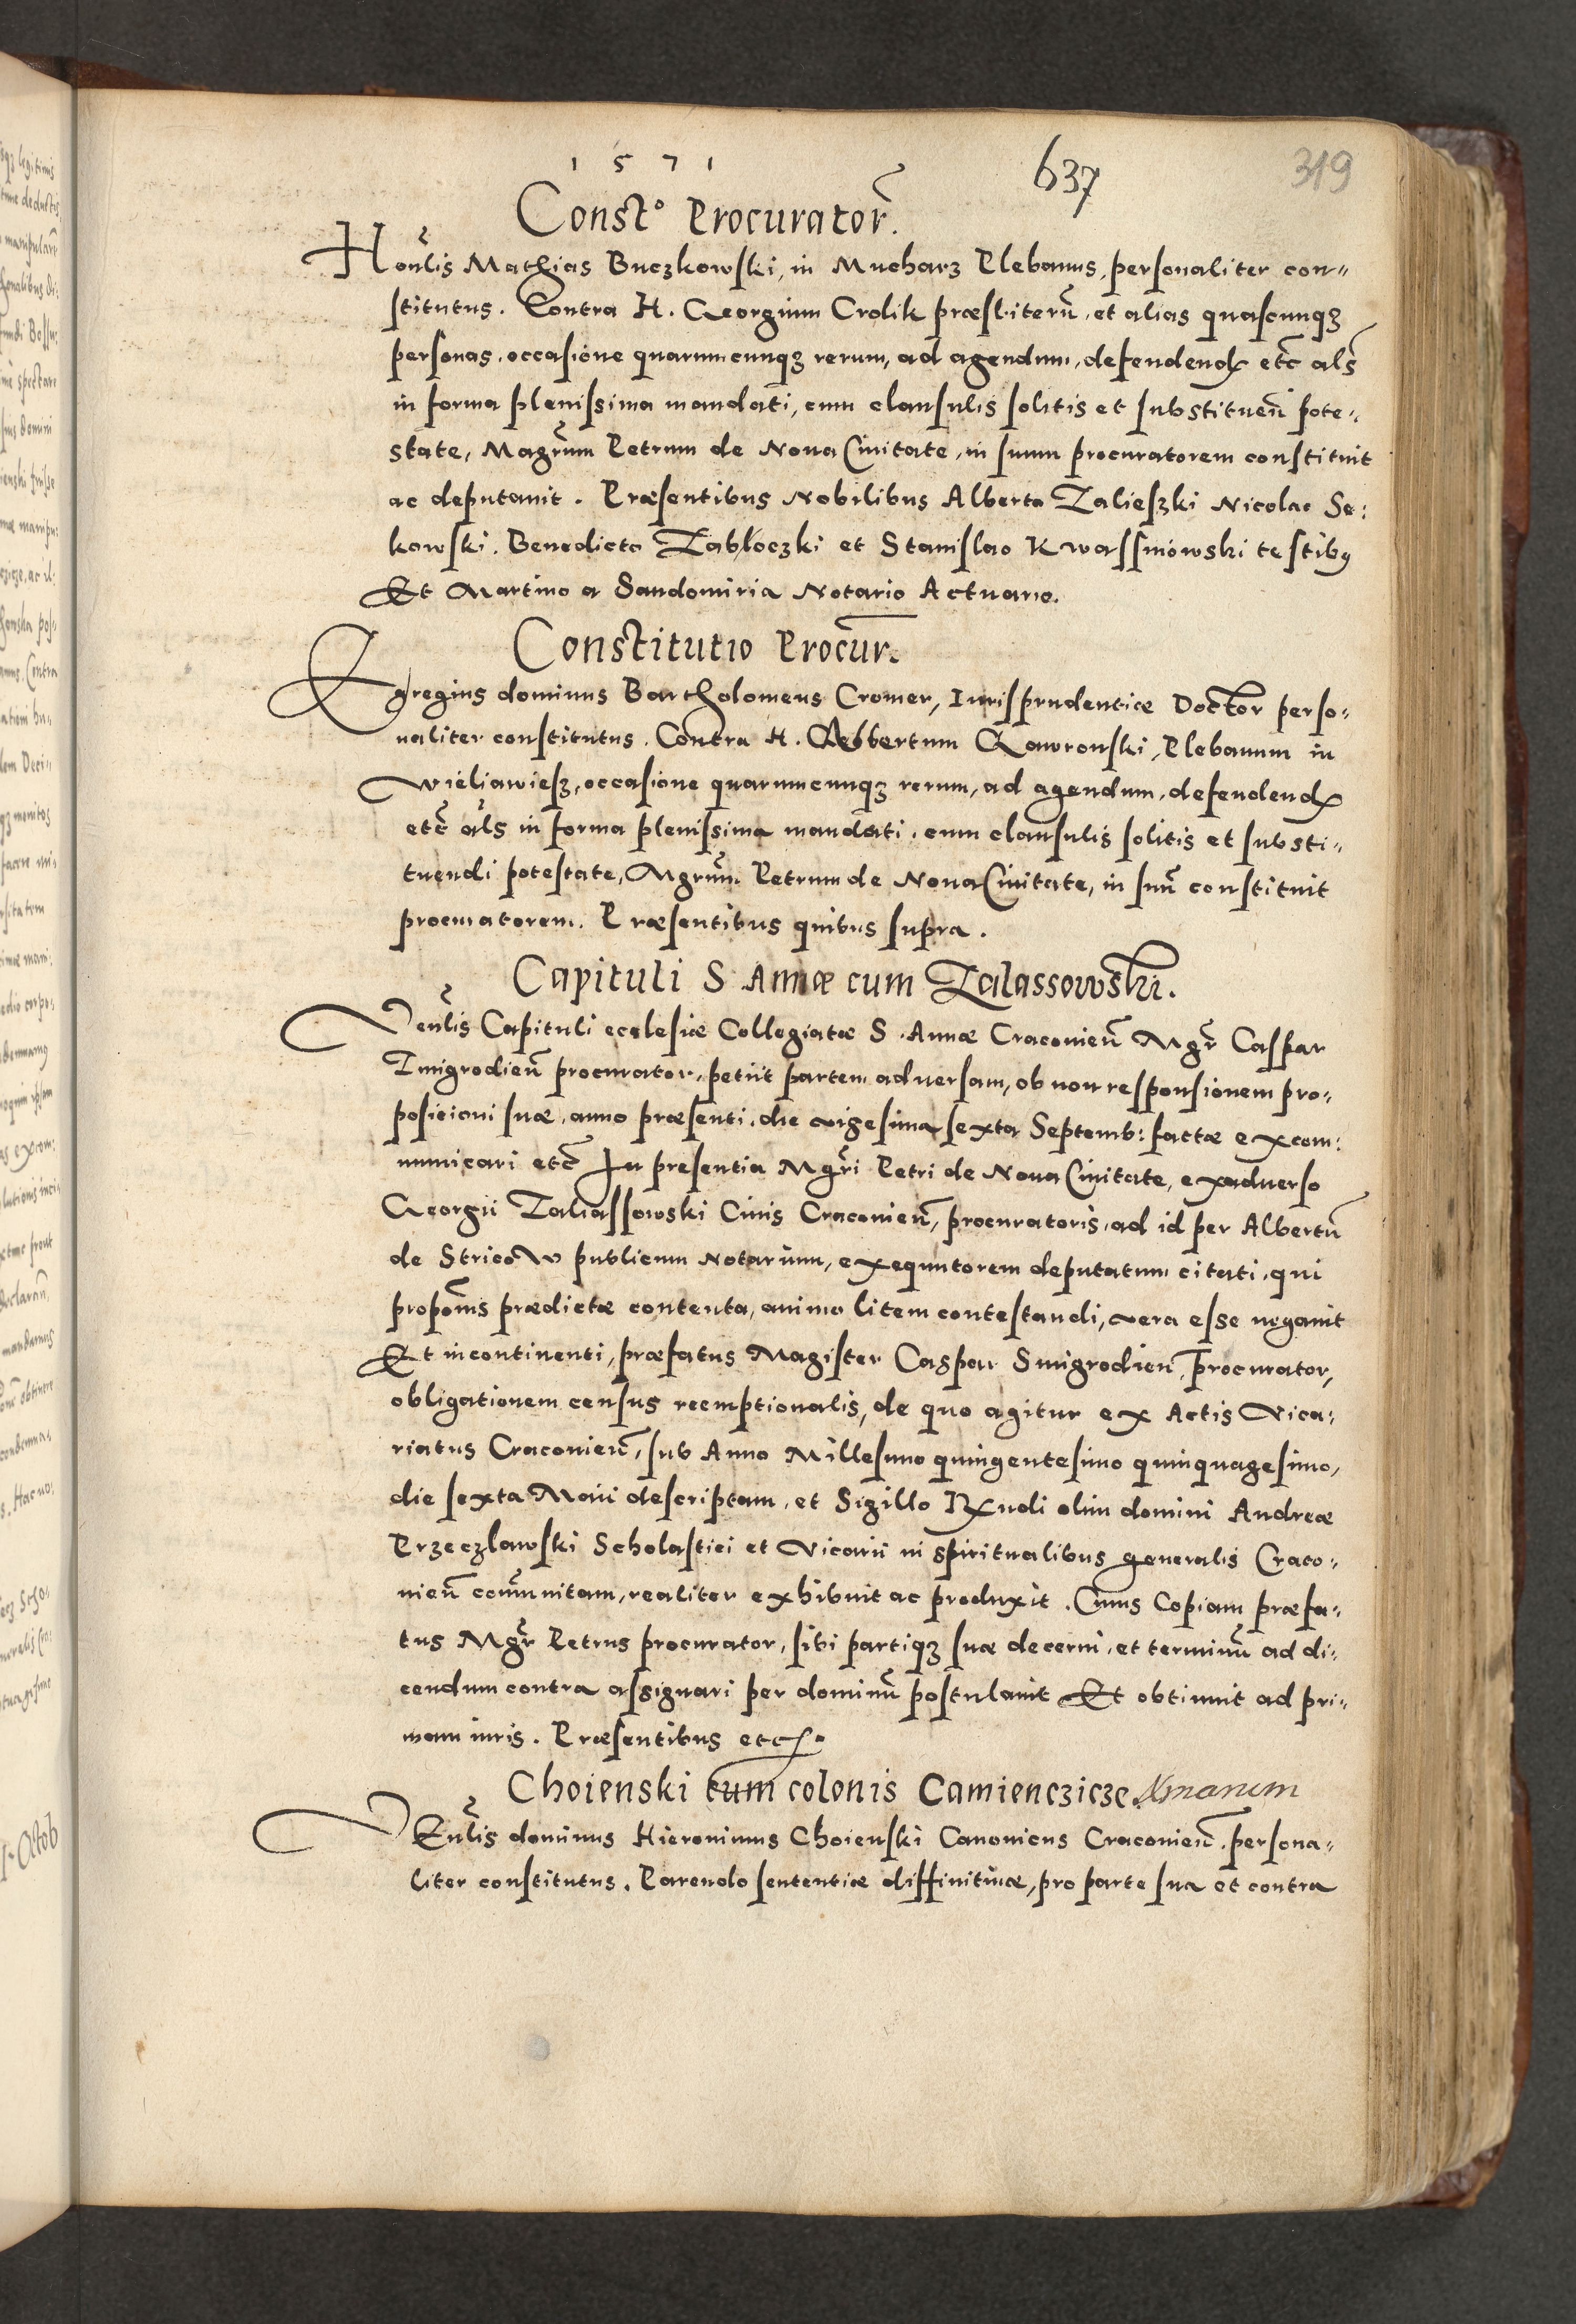 1571
637
319
Const° Procurator̃.
Hoñlis Mathias Buczkowski, in Mucharz Plebanus, personaliter con„
stitutus. Contra H. Georgium Crolik præsbiterũ, et alias quascunqz
personas, occasione quarumcunqz rerum, ad agendum, defendend etc̃ als̃
in forma plenissima mandati, cum clausulis solitis et substituen̄ pote„
state, Magr̃um Petrum de Noua Ciuitate, in suum procuratorem constituit
ac deputauit. Præsentibus Nobilibus Alberto Zalieszki Nicolao Se:
kowski. Benedicto Zabłoczki et Stanislao Kwassniowski testibq
Et Martino a Sandomiria Notario Actuario.
Constitutio Procur̄.
Egregius dominus Bartholomeus Cromer, Iurisprudentiæ Doctor perso„
naliter constitutus. Contra H. Albertum Gawronski, Plebanum in
Wieliawiesz, occasione quarumcunqz rerum, ad agendum, defendend
etc̃ als̃ in forma plenissima mandati, cum clausulis solitis et substi„
tuendi potestate, Mgrũm Petrum de Noua Ciuitate, in suũ constituit
procuratorem. Præsentibus quibus supra.
Capituli S Annæ cum Zalassowski.
Veñlis Capituli ecclesiæ Collegiatæ S. Annæ Cracouieñ Mgr̃ Caspar
Smigrodieñ procurator, petiit partem aduersam, ob non responsionem pro„
posicioni suæ, anno præsenti, die vigesima sexta Septemb: factæ excom:
municari etc̃ In presentia Mgr̃i Petri de Noua Ciuitate, exaduerso
Georgii Zaliassowski Ciuis Cracouieñ, procuratoris, ad id per Albertũ
de Stricow publicum Notarium, exequutorem deputatum citati, qui
propõnis prædictæ contenta, animo litem contestandi, vera esse negauit
Et incontinenti, præfatus Magister Caspar Smigrodieñ, procurator,
obligationem census reemptionalis, de quo agitur ex Actis Vica„
riatus Cracouieñ, sub Anno Millesimo quingentesimo quinquagesimo,
die sexta Maii descriptam, et Sigillo Rxndi olim domini Andreæ
Przeczlawski Scholastici et Vicarii in spiritualibus generalis Craco„
uieñ com̃unitam, realiter exhibuit ac produxit. Cuius Copiam præfa„
tus Mgr̃ Petrus procurator, sibi partiqz suæ decerni, et terminũ ad di„
cendum contra assignari per dominũ postulauit Et obtinuit ad pri„
mam iuris. Præsentibus etc.
Choienski cum colonis Camienczicze.
VEñlis dominus Hieronimus Choienski Canonicus Cracouieñ. persona„
liter constitutus. Parendo sententiæ diffinitiuæ, pro parte sua et contra